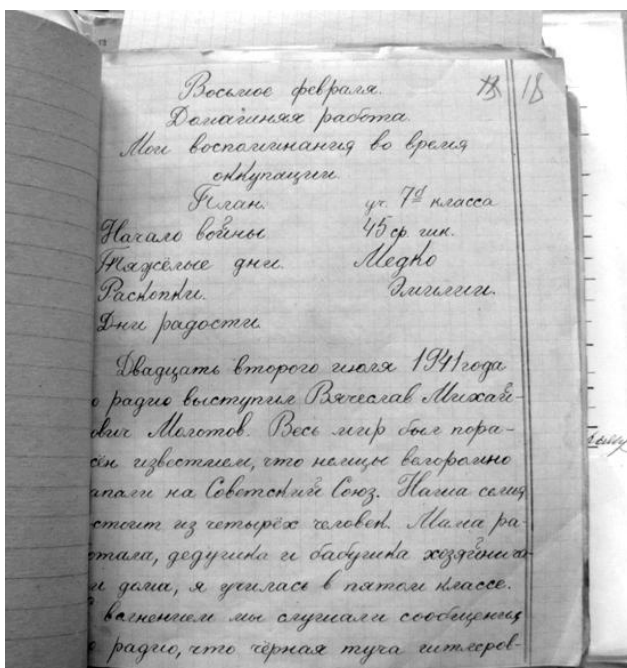 18
Восьмое февраля.
Домашняя работа.
Мои воспоминания во время
оккупации.
План. уч. 7д класса
Начало войны 45 ср. шк.
Тяжёлые дни. Медко
Раскопки. Эмилии.
Дни радости.
Двадцать второго июля 1941 года
о радио выступил Вячеслав Михай-
ович Молотов. Весь мир был пора-
сён известием, что немцы веороломно
апали на Советский Союз. Наша семья
стоит из четырёх человек. Мама ра-
отала, дедушка и бабушка хозяйнича-
и дома, я училась в пятом классе.
волнением мы слушали сообщения
о радио, что чёрная туча гитлеров-